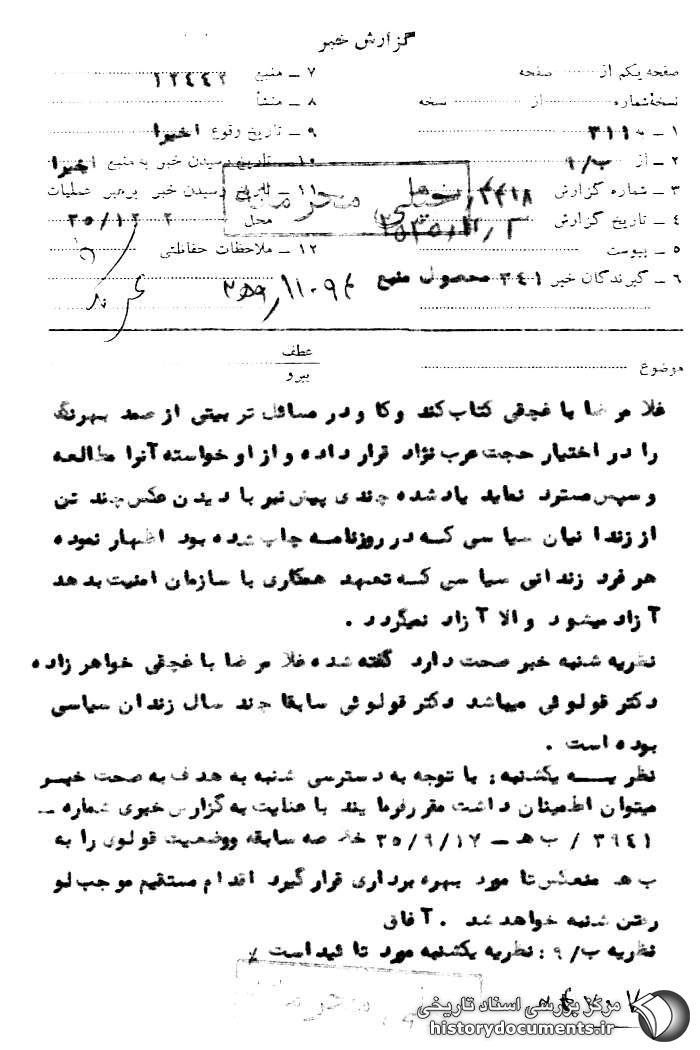 گزارش خبر
صفحه یکم از ......... صفحه
نسخهٔ شماره ......... از ......... نسخه
۱ ــ به ۳۱۱
۲ ــ از ۹/ب
۳ ــ شماره گزارش
۴ ــ تاریخ گزارش
۵ ــ پیوست
۶ ــ گیرندگان خبر ۳۴۱ محصول منبع
۷ ــ منبع
۸ ــ منشأ
۹ ــ تاریخ وقوع اخیرا
۱۰ ــ تاریخ رسیدن خبر به منبع اخیرا
۱۱ ــ تاریخ رسیدن خبر برهبر عملیات
محل
۱۲ ــ ملاحظات حفاظتی
خیلی محرمانه
موضوع
عطف
پیرو
غلامرضا باغچقی کتاب کند وکا و در مسائل تربیتی از صمد بهرنگ
را در اختیار حجت عرب نژاد قرار داده و از او خواسته آنرا مطالعه
و سپس مسترد نماید یادشده چندی پیش نیز با دیدن عکس چند تن
از زندانیان سیاسی که در روزنامه چاپ شده بود اظهار نموده
هر فرد زندانی سیاسی که تعهد همکاری با سازمان امنیت بدهد
آزاد میشود والا آزاد نمیگردد .
نظریه شنبه خبر صحت دارد گفته شده غلامرضا باغچقی خواهر زاده
دکتر قولوئی میباشد دکتر قولوئی سابقا چند سال زندان سیاسی
بوده است .
نظریه یکشنبه : با توجه به دسترسی شنبه به هدف به صحت خبر
میتوان اطمینان داشت مقرر فرمایند با عنایت به گزارش خبری شماره ــ
۳۹۴۱ / ب ه ــ ۳۵/۹/۱۷ خلاصه سابقه و وضعیت قولوی را به
ب ه منعکس تا مورد بهره برداری قرار گیرد اقدام مستقیم موجب لو
رفتن شنبه خواهد شد . آفاق
نظریه ب/۹ : نظریه یکشنبه مورد تائید است /
مرکز بررسی اسناد تاریخی
historydocuments.ir